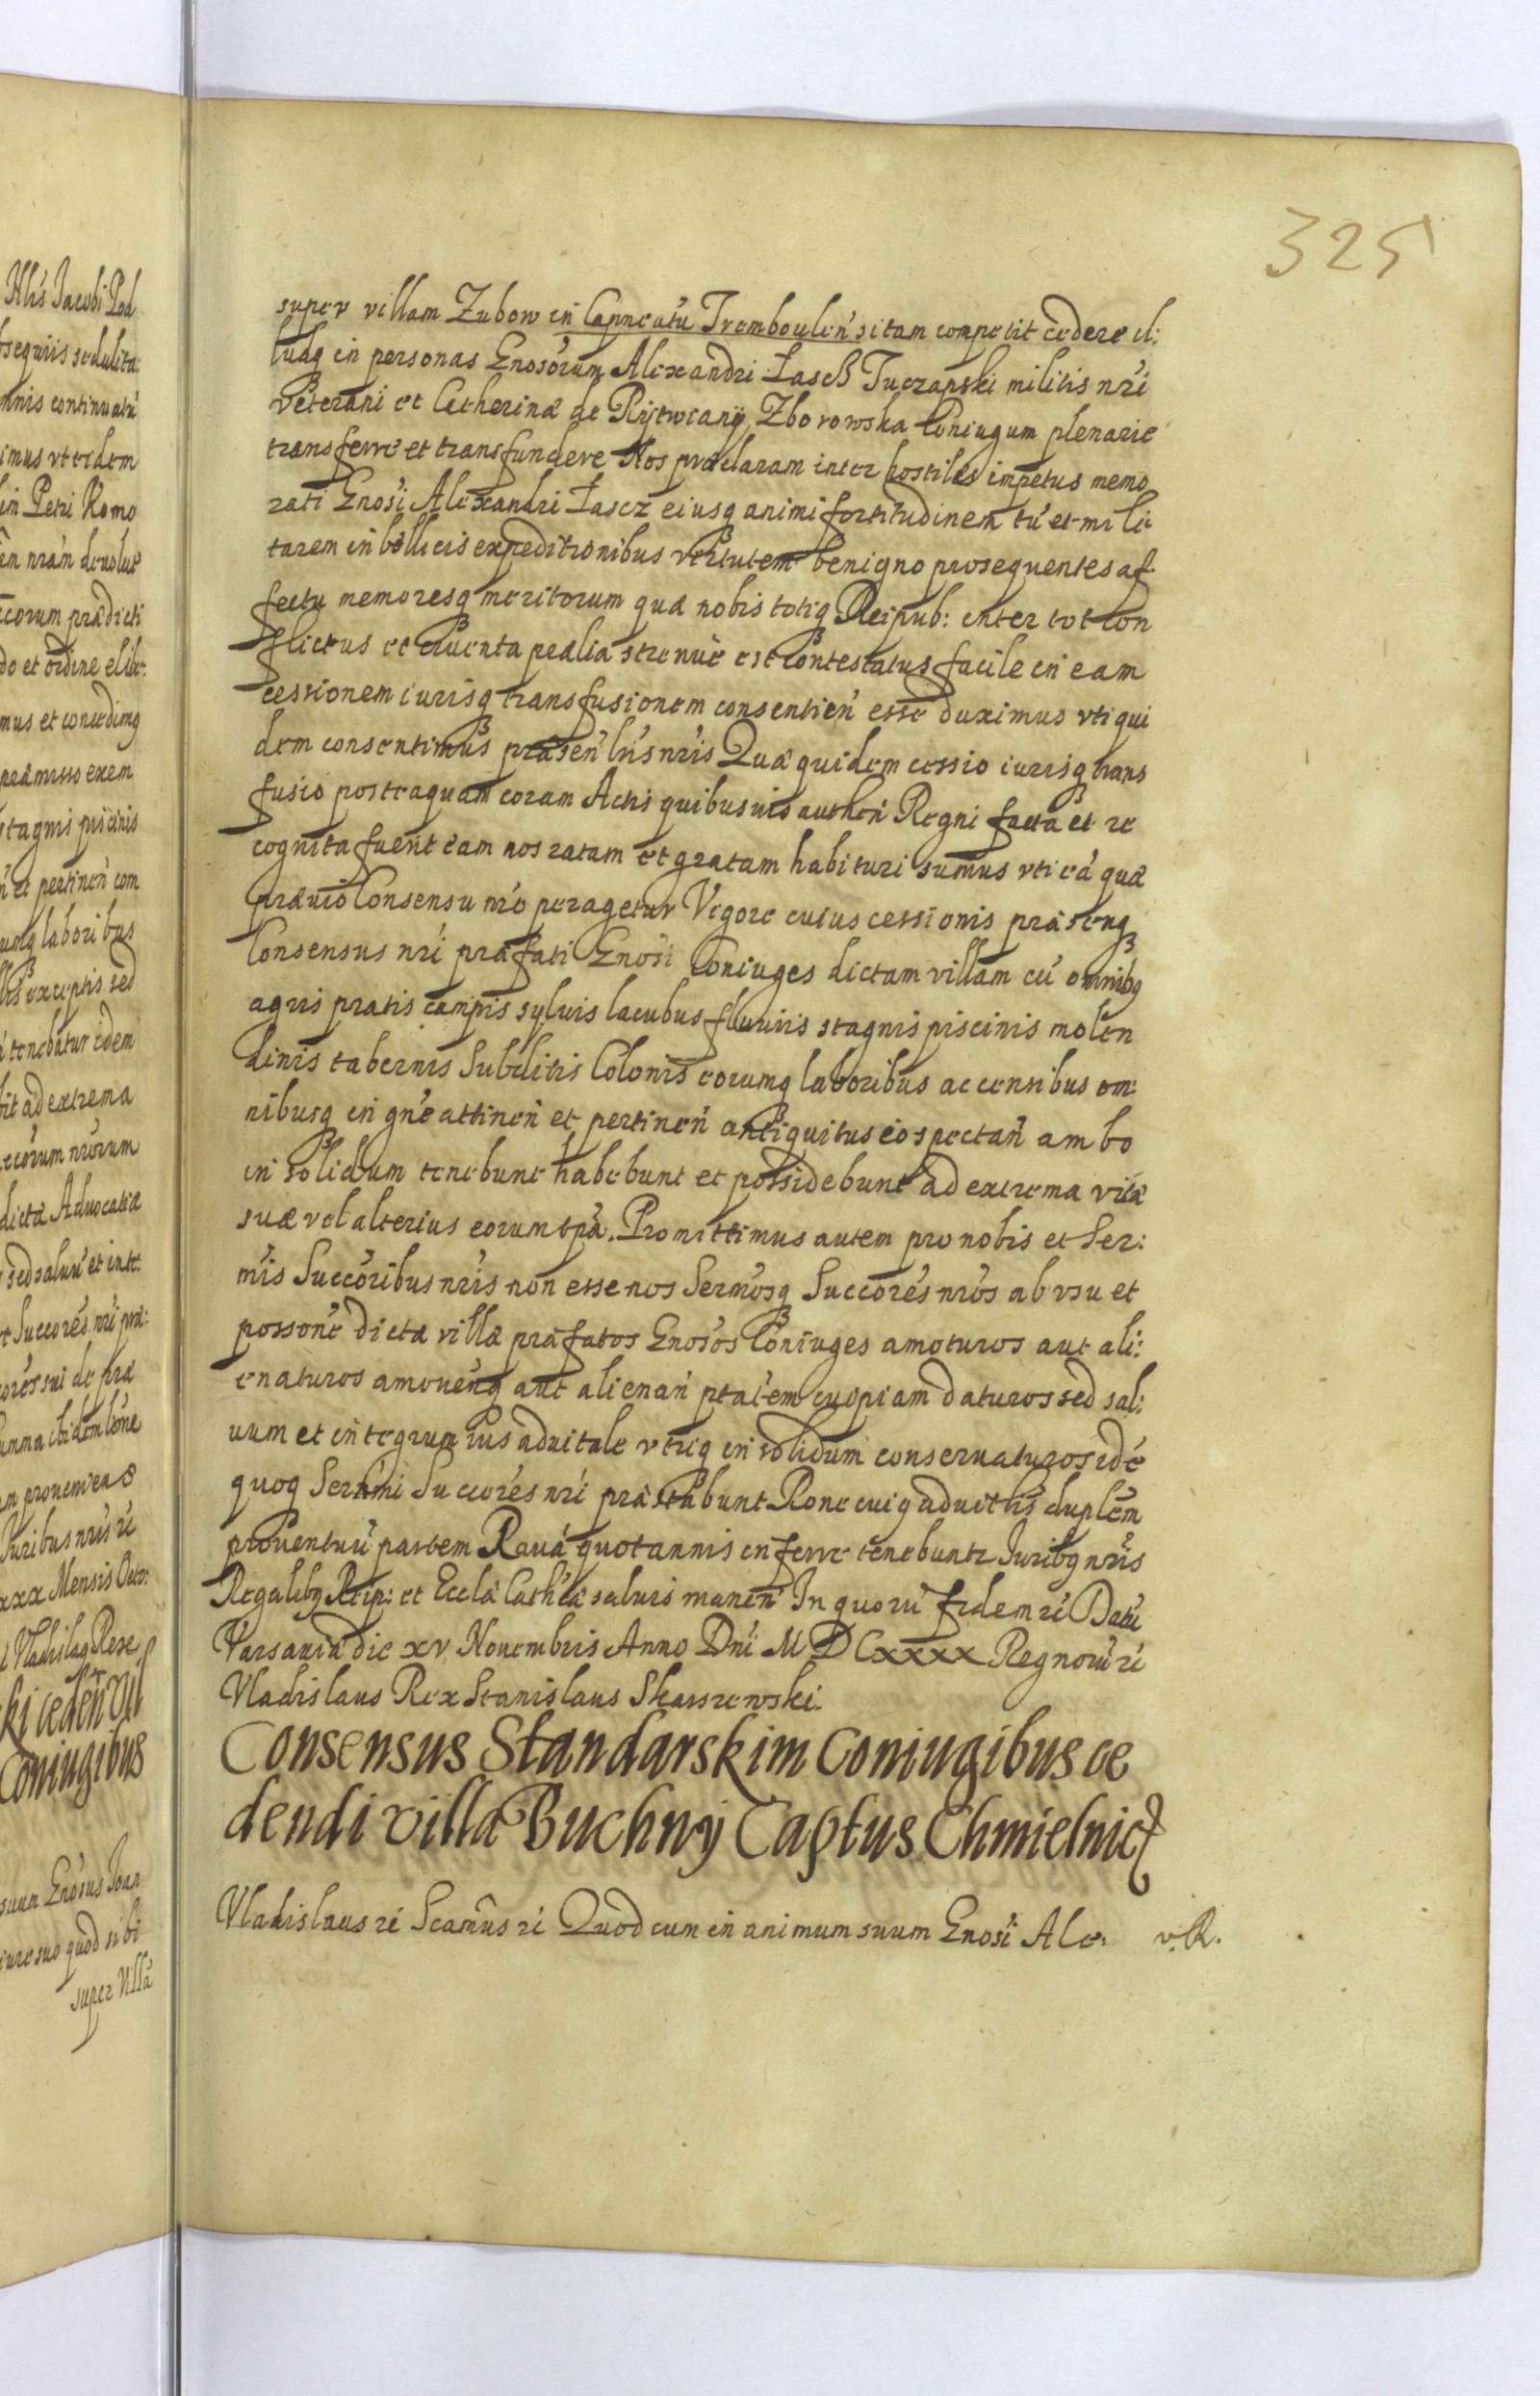 325
super villam Zubow in Capneatu Tremboulen̄ sitam competit cedere il:
ludq in personas Gnosórum Alexandri Łasch Tuczapski militis nri
veterani et Catherinæ de Rÿtwianÿ Zborowska Coniugum plenarie
transferre et transfundere Nos præclaram inter hostiles impetus memo
rati Gnosi Alexandri Łascz eiusq animi fortitudinem tú et mili
tarem in bellicis expeditionibus virtutem benigno prosequentes af
fectu memoresq meritorum quæ nobis totiq Reipub: inter tot con
flictus et cruenta pælia strenuè est contestatus facile in eam
cessionem iurisq transfusionem consentien̄ esse duximus vti qui
dem consentimus præsen̄ lris nris Quæ quidem cessio iurisq trans
fusio posteaquam coram Actis quibusuis authen̄ Regni facta et re
cognita fuerit eam nos ratam et gratam habituri sumus vti eá quæ
præuio Consensu nro peragetur Vigore cuius cessionis præsentq
Consensus nri præfati Gnosi Coniuges dictam villam cú omnibq
agris pratis campis syluis lacubus fluuiis stagnis piscinis molen
dinis tabernis Subditis Colonis eorumq laboribus ac censibus om
nibusq in gn̄e attinen̄ et pertinen̄ antiquitus eo spectan̄ ambo
in solidum tenebunt habebunt et possidebunt ad extrema vitæ
suæ vel alterius eorum tp̄a. Promittimus autem pro nobis et Ser:
mis Succóribus nris non esse nos Sermósq Succorés nros ab vsu et
possoné dictæ villæ præfatos Gnosos Coniuges amoturos aut ali:
enaturos amouen̄q aut alienan̄ ptatem cuopiam daturos sed sal:
uum et integrum ius aduitale vtriq in solidum conseruaturos idé
quoq Serenmi Succorés nri præstabunt Rone cuiq aduitlis duplem
prouentuú partem Rauá quotannis inferre tenebuntr Juribq nris
Regalibq Reip: et Eccla Cathca saluis manen̄ In quorú fidem rć Datú
Varsauiæ die xv Nouembris Anno Dni M D Cxxxx Regnorú rć
Vladislaus Rex Stanislaus Skarszewski.
Consensus Standarskim Coniugibus ce
dendi villa Buchnÿ Captus Chmielnic
Vladislaus rć Scamus rć Quod cum in animum suum Gnosi Ale: v.R.